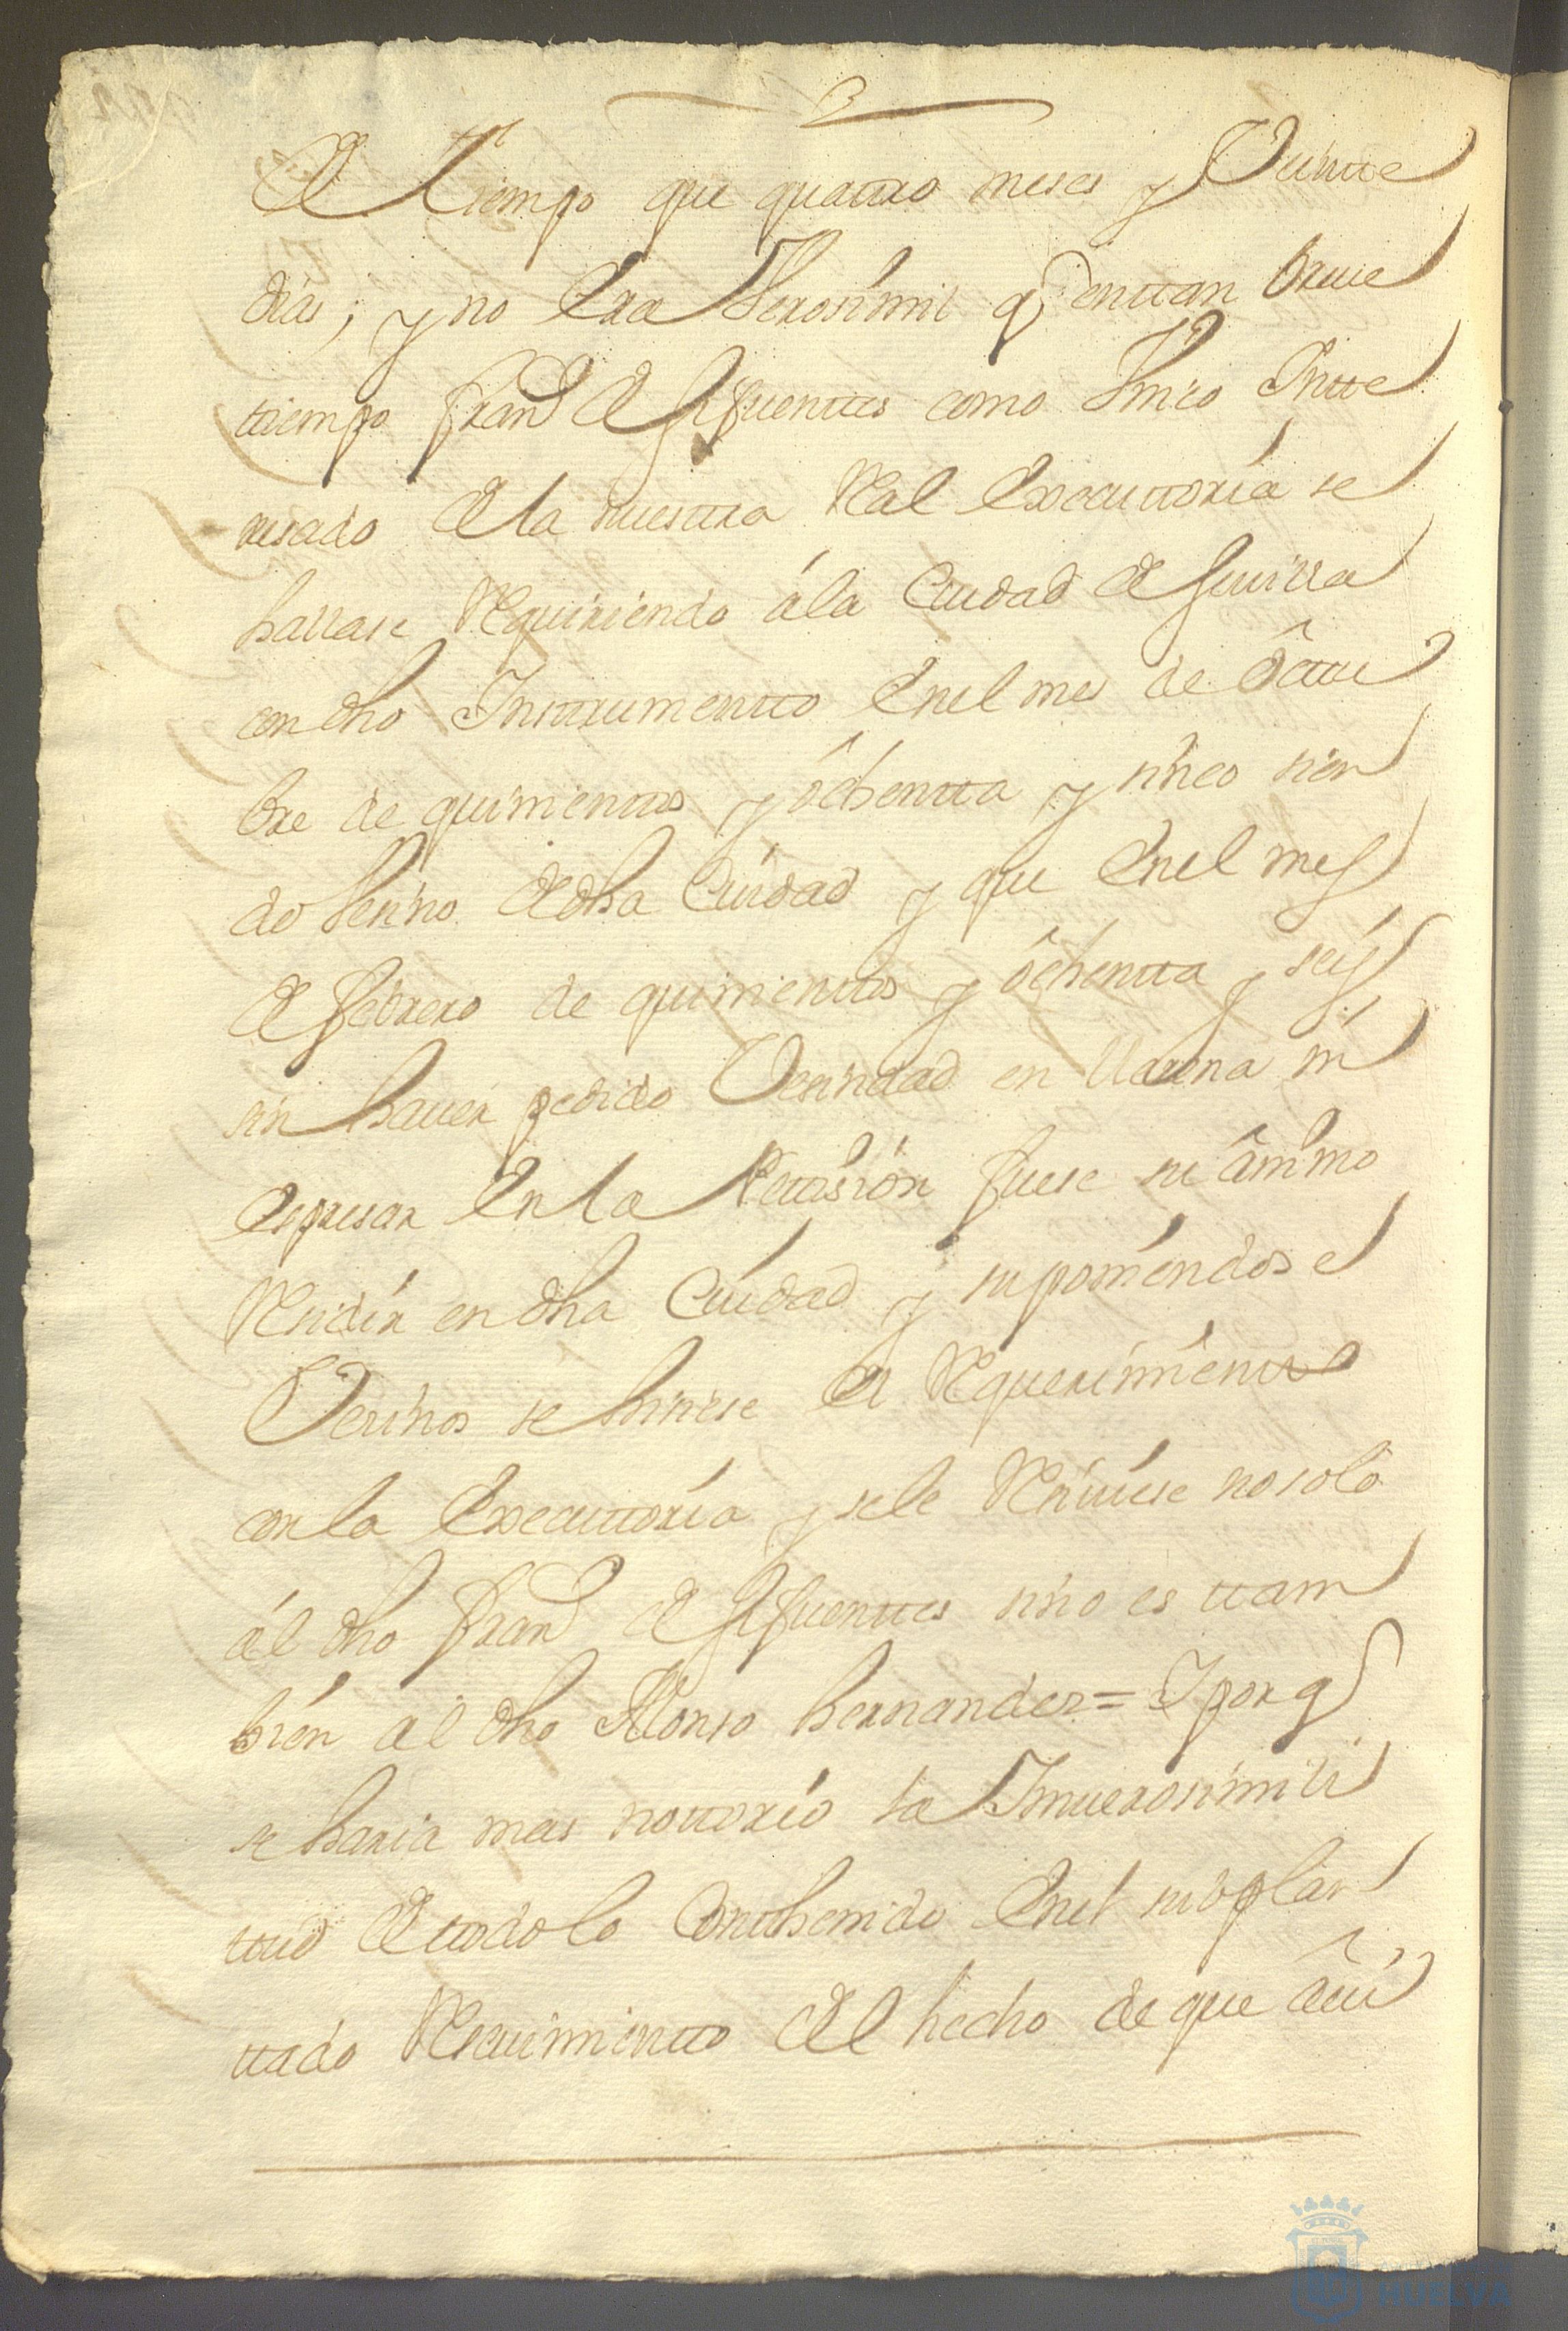 de tiempo que quattro meses y Veintte
dias; y no era Verosimil q enttan breve
ttiempo Fran.co de Sifuenttes como Vnico Intte
resado de la nuestra Real Executtoria se
hallase Requiriendo á la Ciudad de Sevilla
con dho Instrumentto en el mes de Octtu
bre de quinienttos y ôchentta y sinco sien
do Vesino de dha Ciudad y que en el mes
de febrero de quinienttos y ôchentta y seis
sin haver pedido Vesindad en
espresar en la Petision fuese su ânimo
Residir en dha Ciudad y suponiendose
Vesinos se hisiese el Requerimientto
con la Executtoria y se le Resiviese no solo
ál dho Fran.co de Sifuenttes sino es ttam
bien al dho Alonso hernandes = Y porq
se haria mas nottorio la Inverosimili
ttud de ttodo lo Conthenido en el suplan
ttado Resivimientto el hecho de que
HUELVA